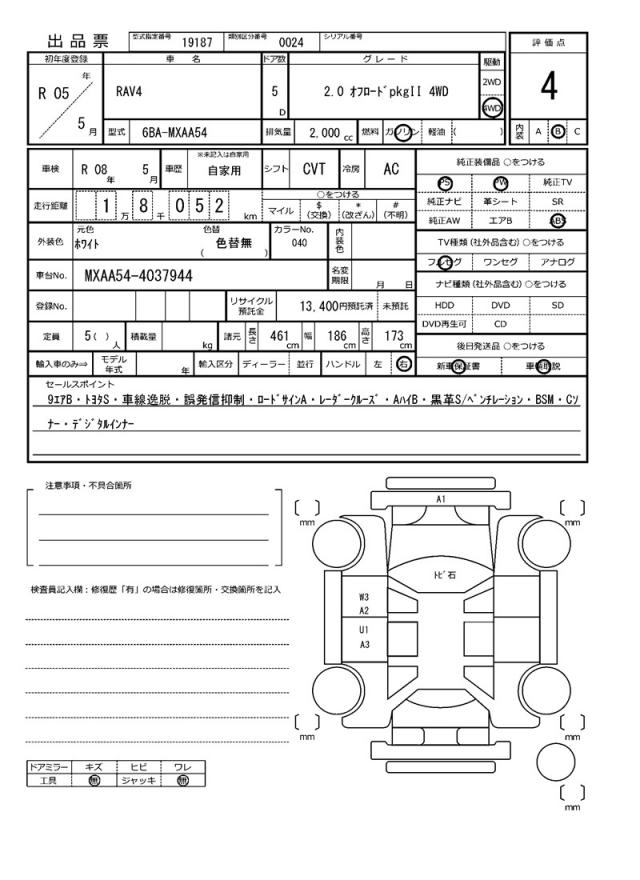 出品票
型式指定番号 19187 類別区分番号 0024 シリアル番号
初年度登録 車名 ドア数 グレード 駆動 評価点
R 05 年 5 月
RAV4 5 D 2.0 オフロードpkgII 4WD
2WD
4WD
4
型式 6BA-MXAA54 排気量 2,000 cc 燃料 ガソリン 軽油 ( ) 内装 A B C
車検 R 08 年 5 月 車歴 ※未記入は自家用 自家用 シフト CVT 冷房 AC
純正装備品 ○をつける
PS PW 純正TV
純正ナビ 革シート SR
純正AW エアB ABS
走行距離 1 万 8 千 0 5 2 km
○をつける
マイル $(交換) *(改ざん) #(不明)
外装色 元色 ホワイト 色替 ( 色替無 ) カラーNo. 040 内装色
TV種類 (社外品含む) ○をつける
フルセグ ワンセグ アナログ
車台No. MXAA54-4037944 名変期限 月 日
ナビ種類 (社外品含む) ○をつける
HDD DVD SD
DVD再生可 CD
登録No. リサイクル預託金 13,400円預託済 未預託
定員 5( ) 人 積載量 kg 諸元 長さ 461 cm 幅 186 cm 高さ 173 cm
後日発送品 ○をつける
新車保証書 車輌取説
輸入車のみ⇒ モデル年式 年 輸入区分 ディーラー 並行 ハンドル 左 右
セールスポイント
9エアB・トヨタS・車線逸脱・誤発信抑制・ロードサインA・レーダークルーズ・AハイB・黒革S/ベンチレーション・BSM・Cソ
ナー・デジタルインナー
注意事項・不具合箇所
検査員記入欄：修復歴「有」の場合は修復箇所・交換箇所を記入
A1
トビ石
W3
A2
U1
A3
mm
mm
mm
mm
mm
ドアミラー キズ ヒビ ワレ
工具 無 ジャッキ 無